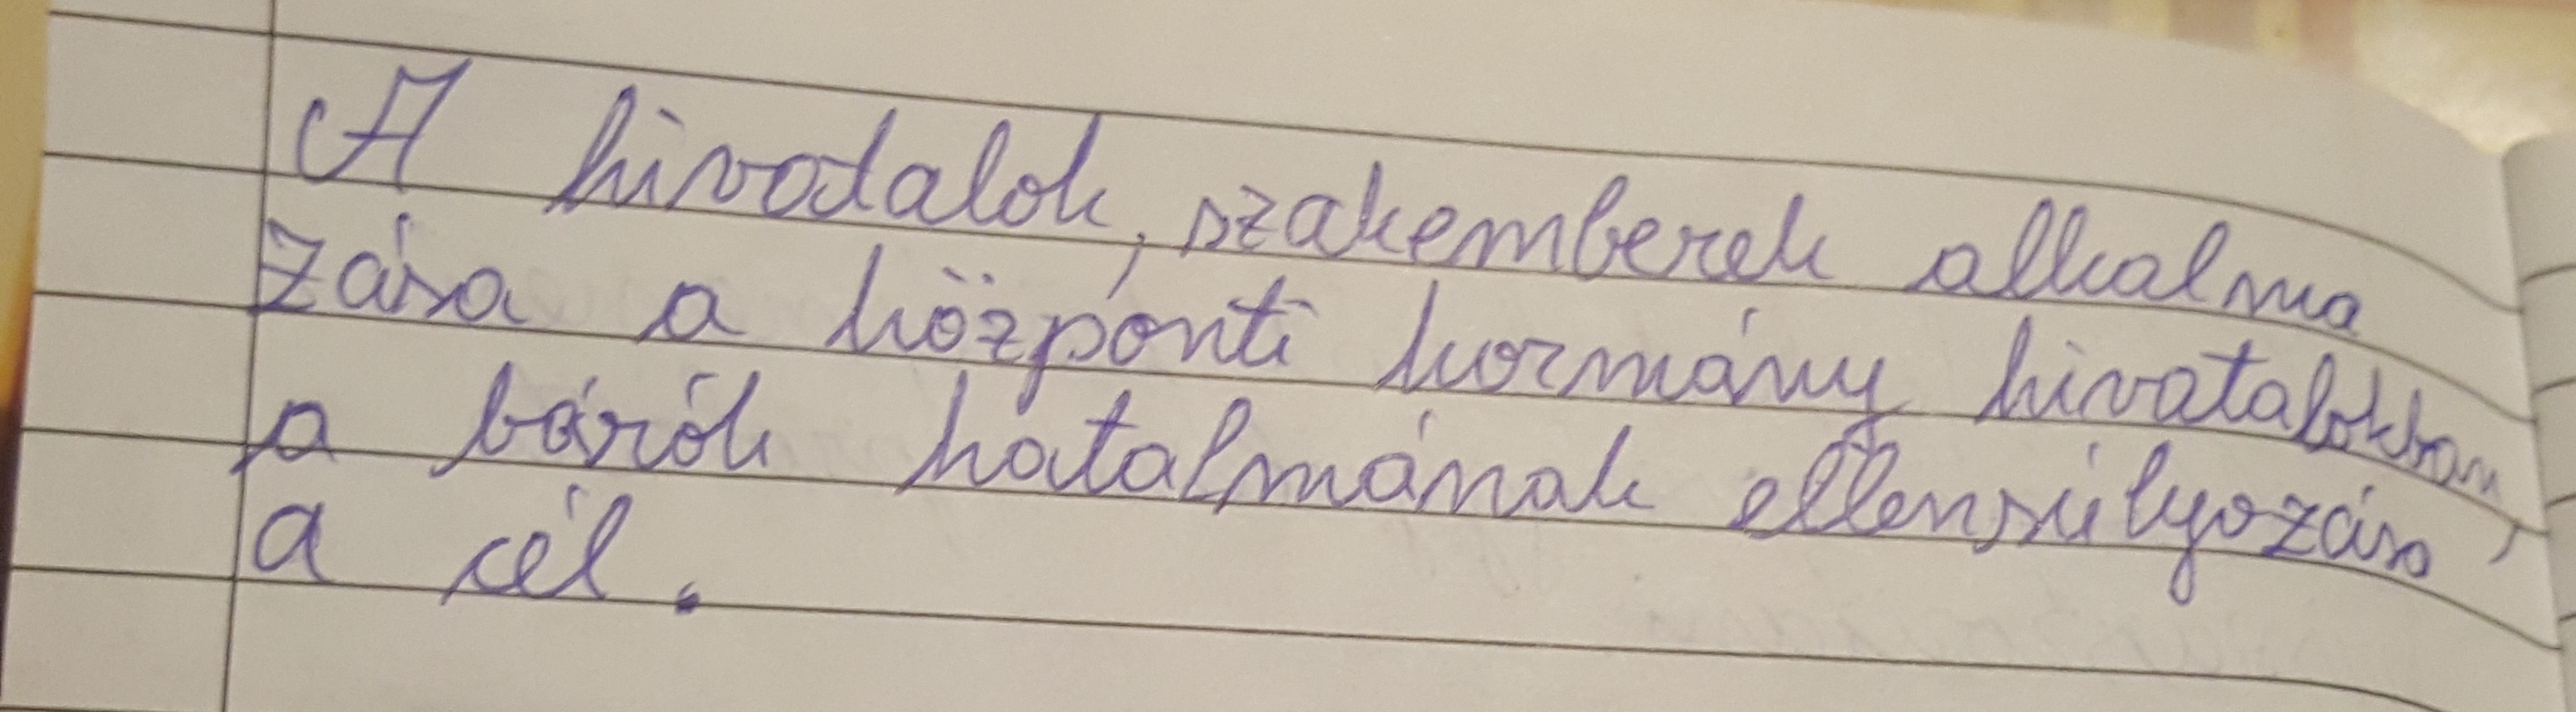 A hivodalok, szakemberek alkalma
zása a központi kormány hivatalokban,
a bárók hatalmának ellensúlyozása
a cél.